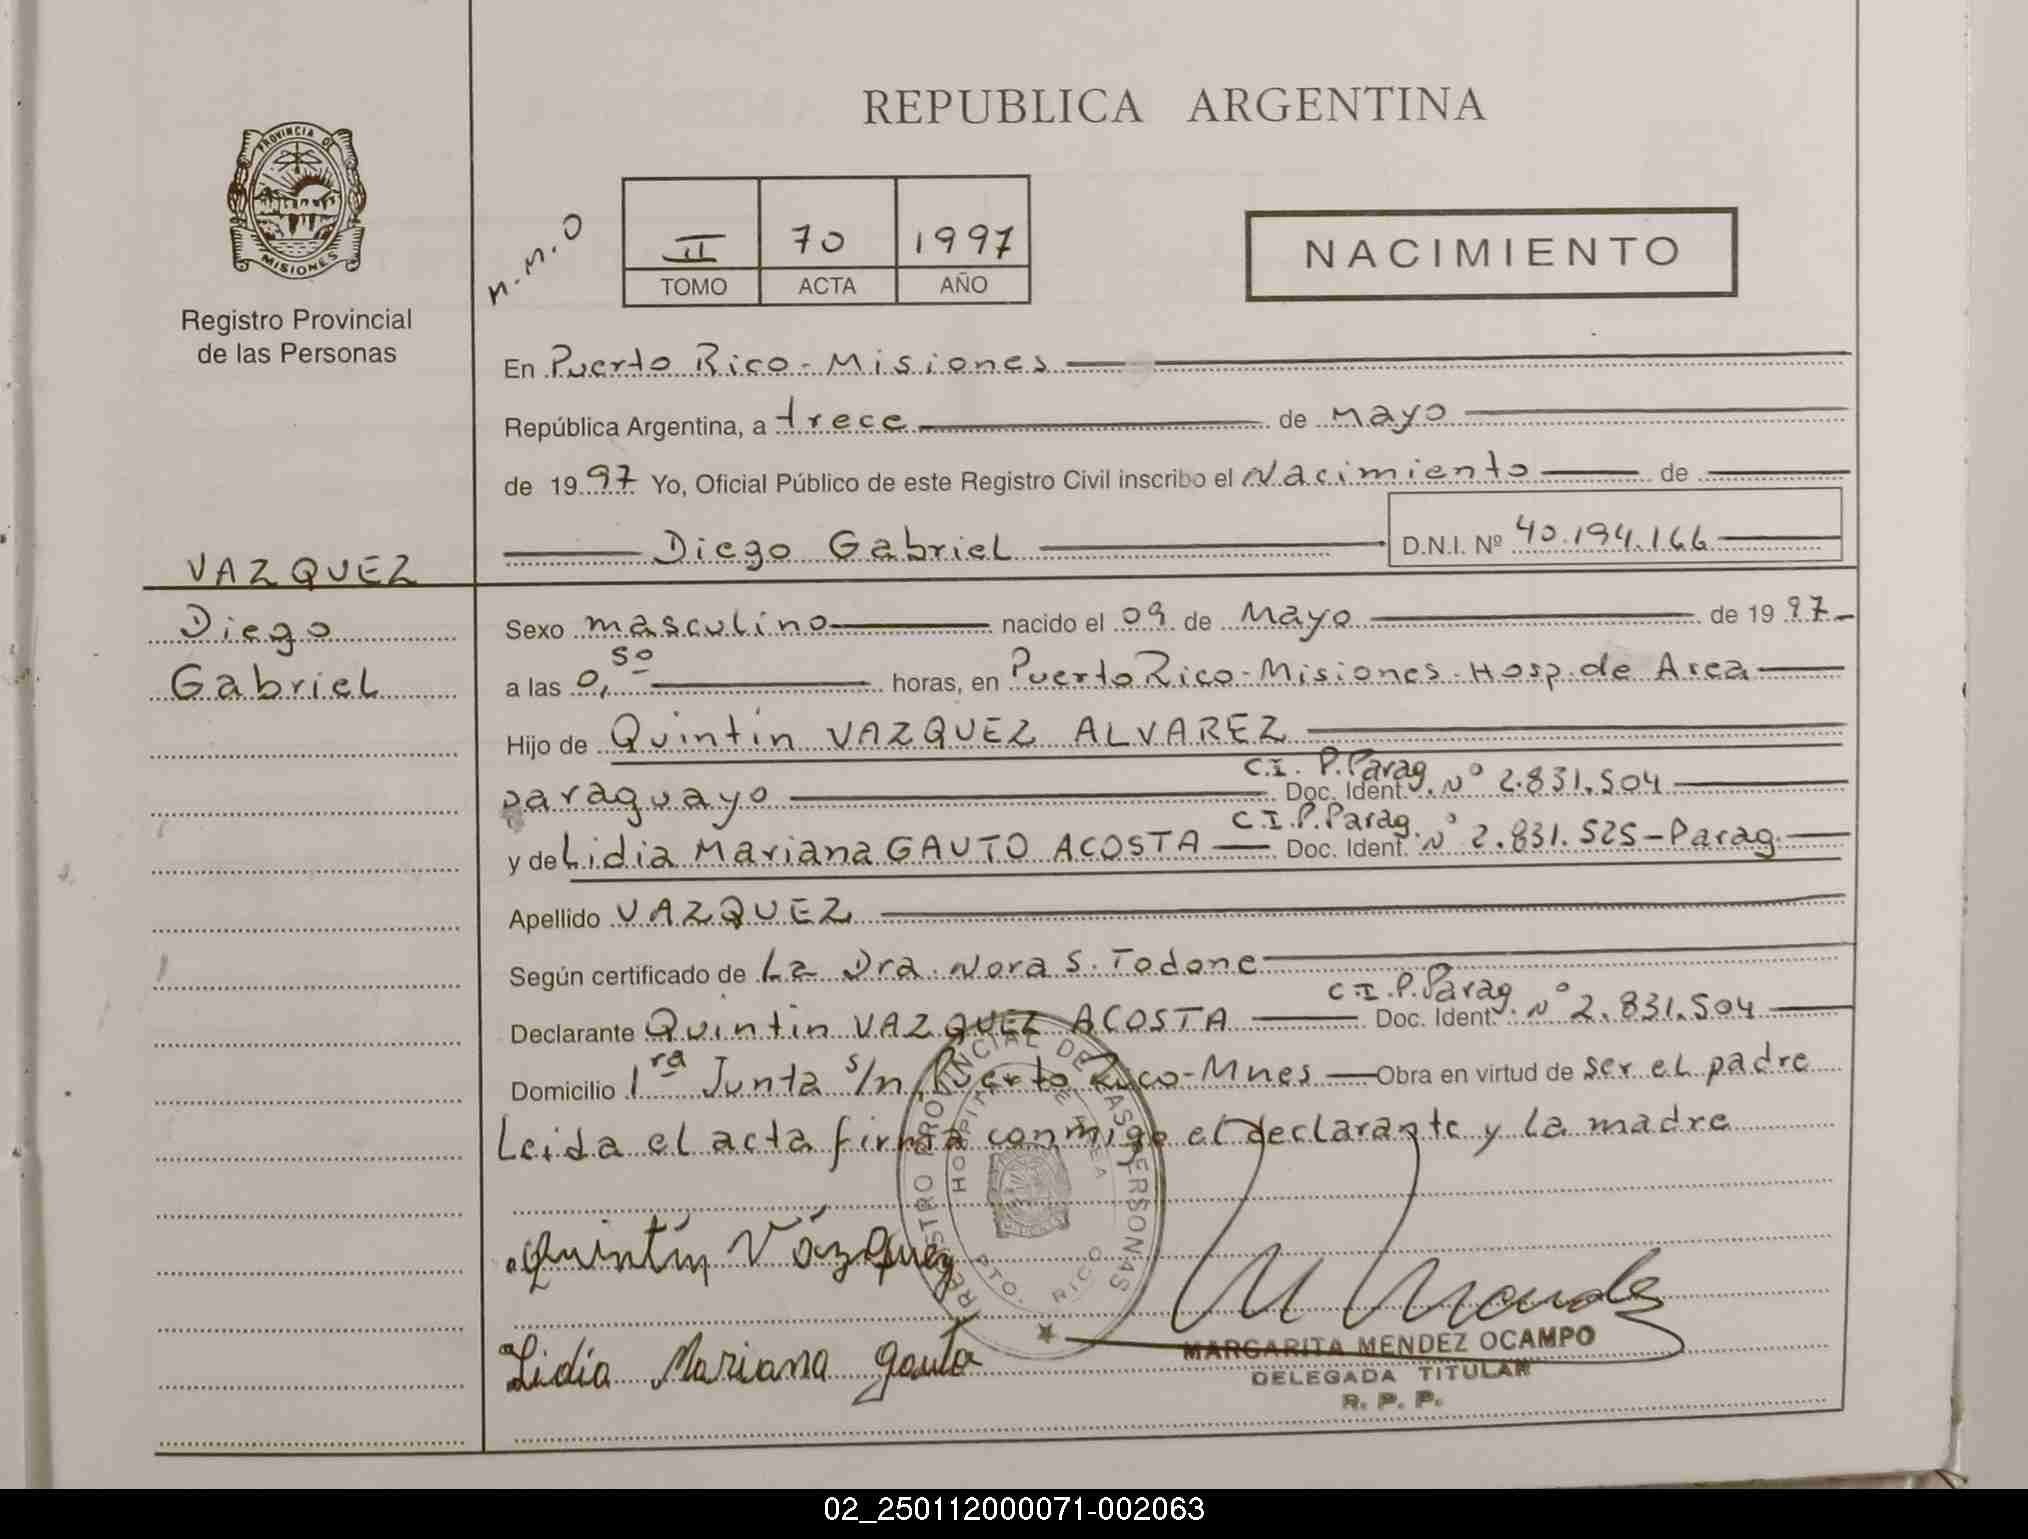 REPUBLICA ARGENTINA
PROVINCIA DE
MISIONES
Registro Provincial
de las Personas
n.n.o
II 70 1997
TOMO ACTA AÑO
NACIMIENTO
En Puerto Rico - Misiones
República Argentina, a trece de mayo
de 1997 Yo, Oficial Público de este Registro Civil inscribo el Nacimiento de
Diego Gabriel D.N.I. Nº 40.194.166
VAZQUEZ
Diego
Gabriel
Sexo masculino nacido el 09 de Mayo de 1997
a las 0,50 horas, en Puerto Rico - Misiones - Hosp. de Area
Hijo de Quintin VAZQUEZ ALVAREZ
paraguayo C.I. P. Parag. Doc. Ident. Nº 2.831.504
y de Lidia Mariana GAUTO ACOSTA C.I. P. Parag. Doc. Ident. Nº 2.831.525 - Parag.
Apellido VAZQUEZ
Según certificado de La Dra. Nora S. Todone
Declarante Quintin VAZQUEZ ACOSTA C.I. P. Parag. Doc. Ident. Nº 2.831.504
Domicilio 1ra Junta s/n, Puerto Rico - Mnes Obra en virtud de ser el padre
Leida el acta firma conmigo el declarante y la madre
REGISTRO PROVINCIAL DE LAS PERSONAS
HOSPITAL DE AREA
PTO. RICO
Quintín Vázquez
Lidia Mariana Gauto
M Mendez
MARGARITA MENDEZ OCAMPO
DELEGADA TITULAR
R. P. P.
02_250112000071-002063